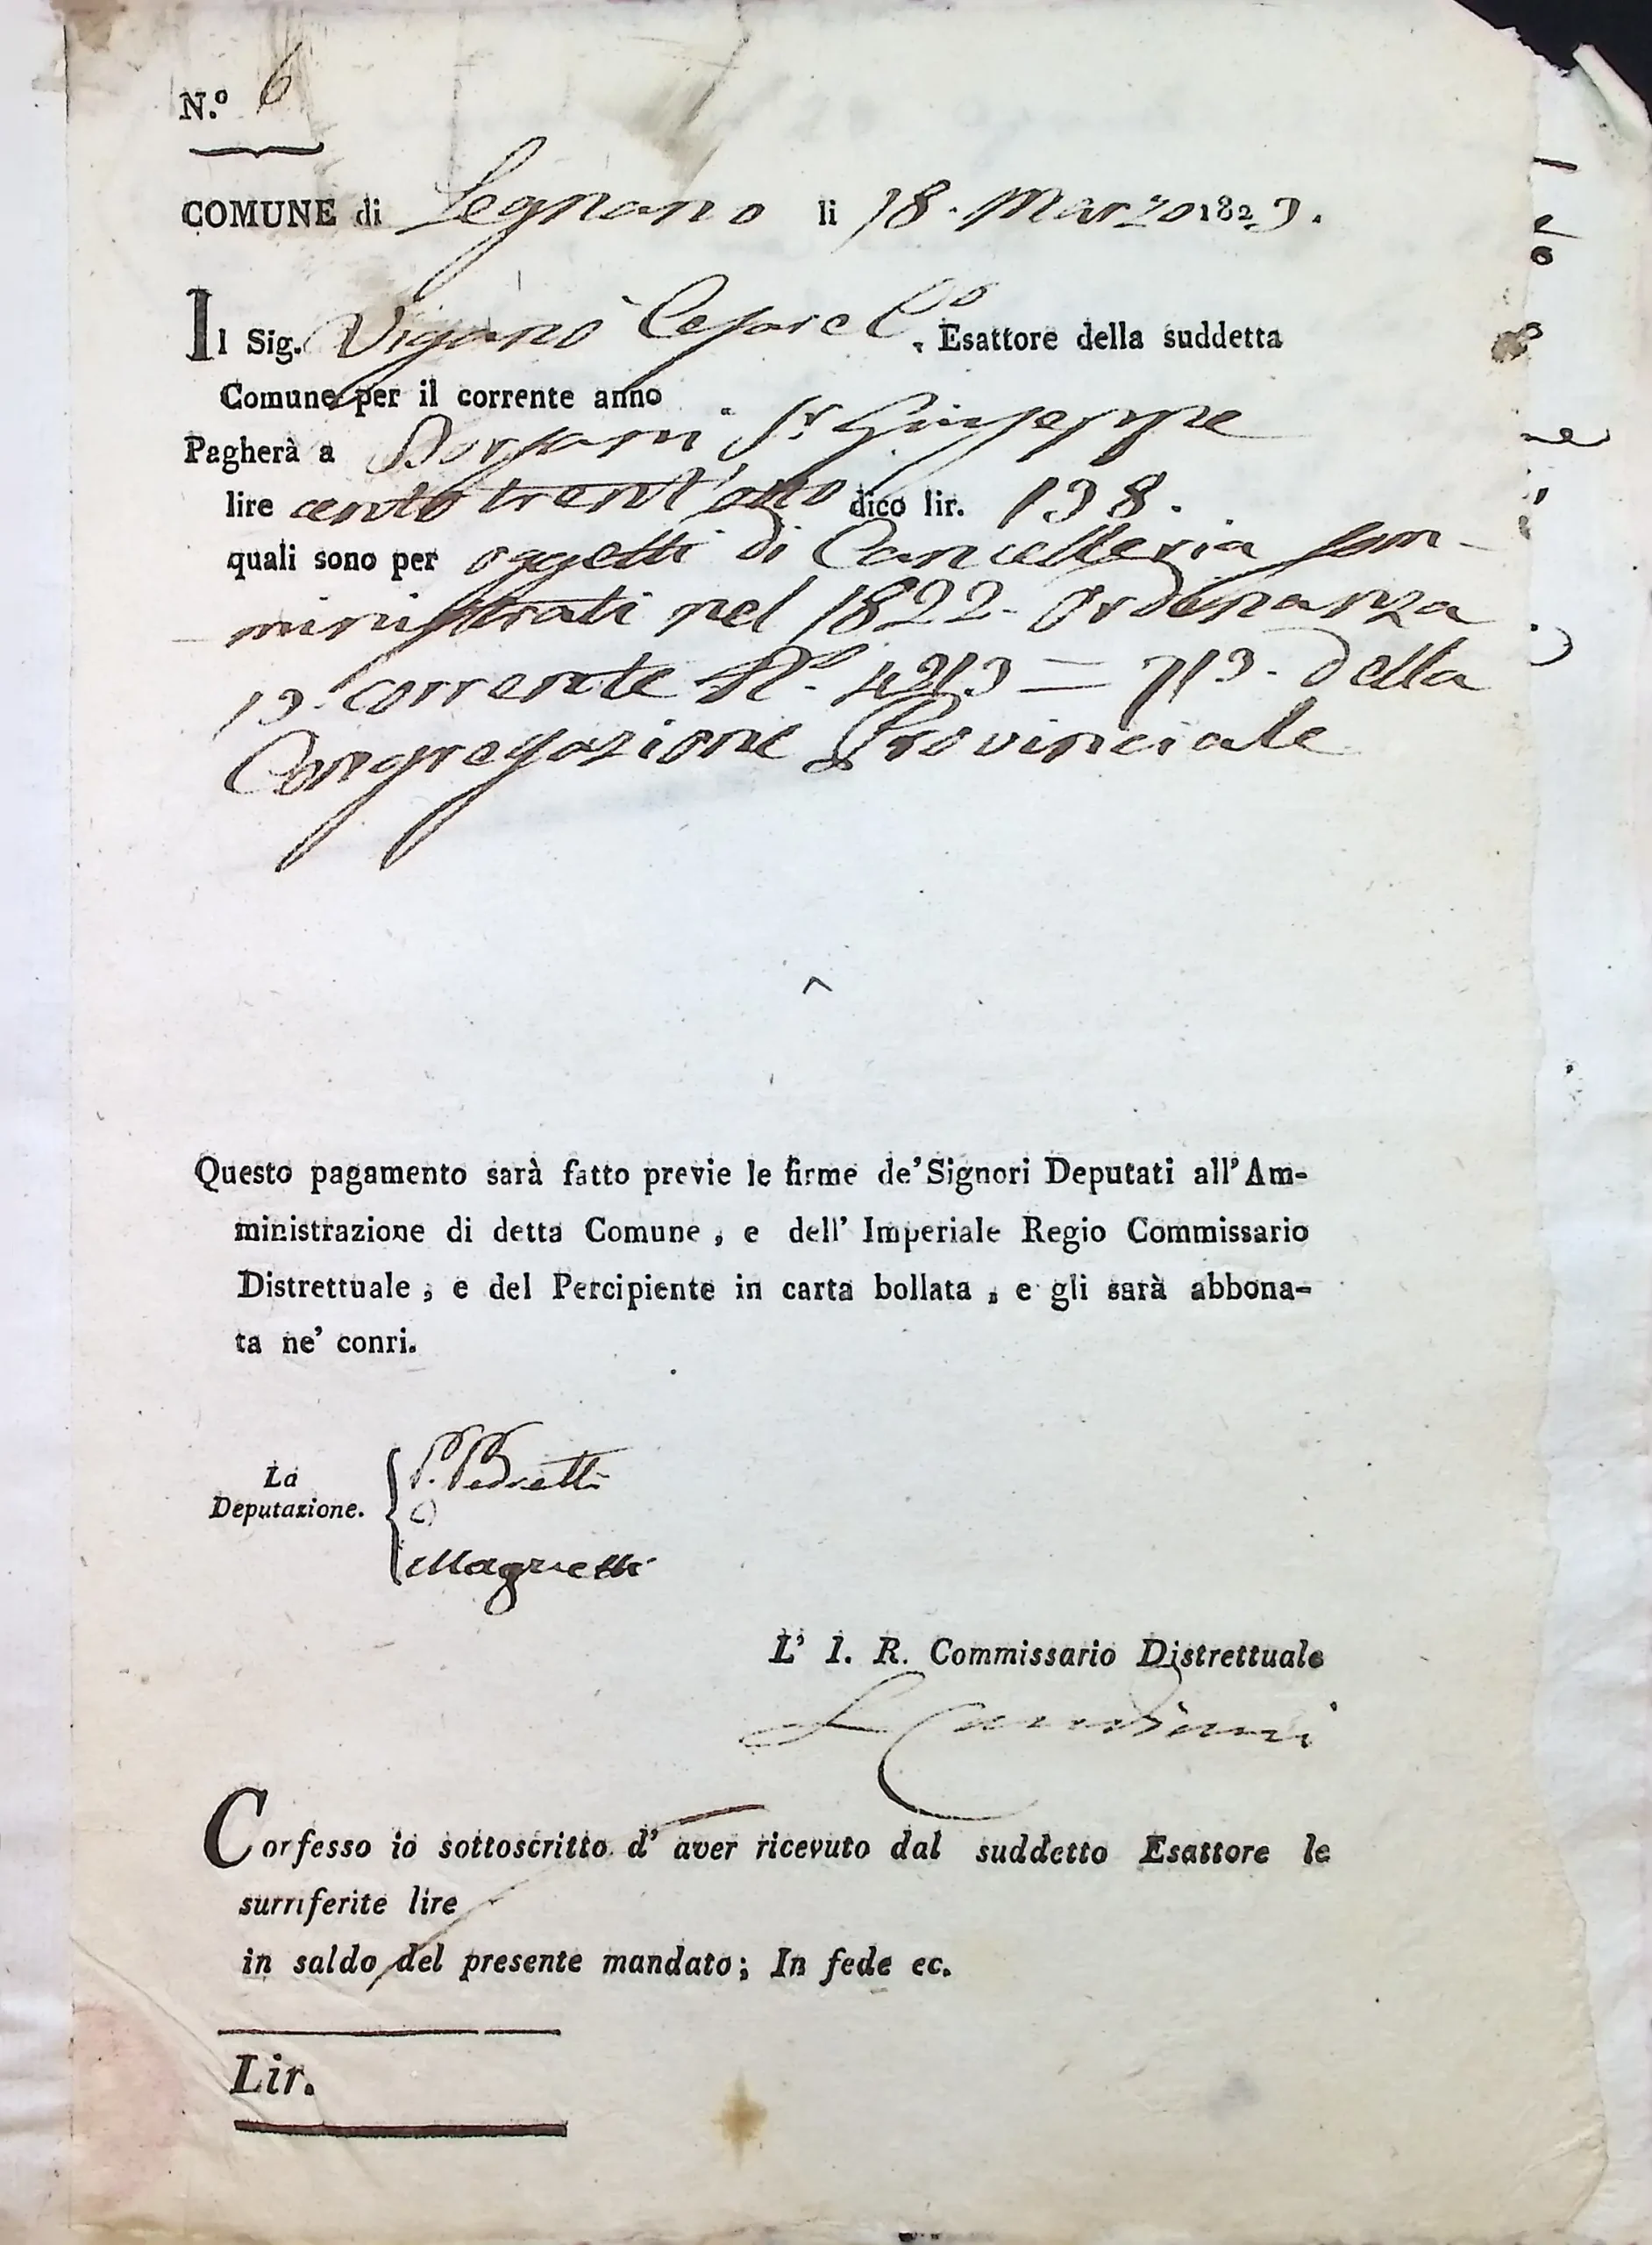 N.º 6
COMUNE di Legnano li 18. Marzo 1823.
Il Sig. Viganò Cesare C.º Esattore della suddetta
Comune per il corrente anno
Pagherà a Borsani Sr. Giuseppe
lire cento trent'otto dico lir. 138.
quali sono per oggetti di Cancelleria som-
ministrati nel 1822. Ordenanza
13. corrente N.º 4213 = 713. della
Congregazione Provinciale
Questo pagamento sarà fatto previe le firme de' Signori Deputati all' Am-
ministrazione di detta Comune, e dell' Imperiale Regio Commissario
Distrettuale, e del Percipiente in carta bollata, e gli sarà abbona-
ta ne' conri.
La
Deputazione.
P. Pedretti
Magnetti
L' I. R. Commissario Distrettuale
Corfesso io sottoscritto d' aver ricevuto dal suddetto Esattore le
surriferite lire
in saldo del presente mandato; In fede ec.
Lir.